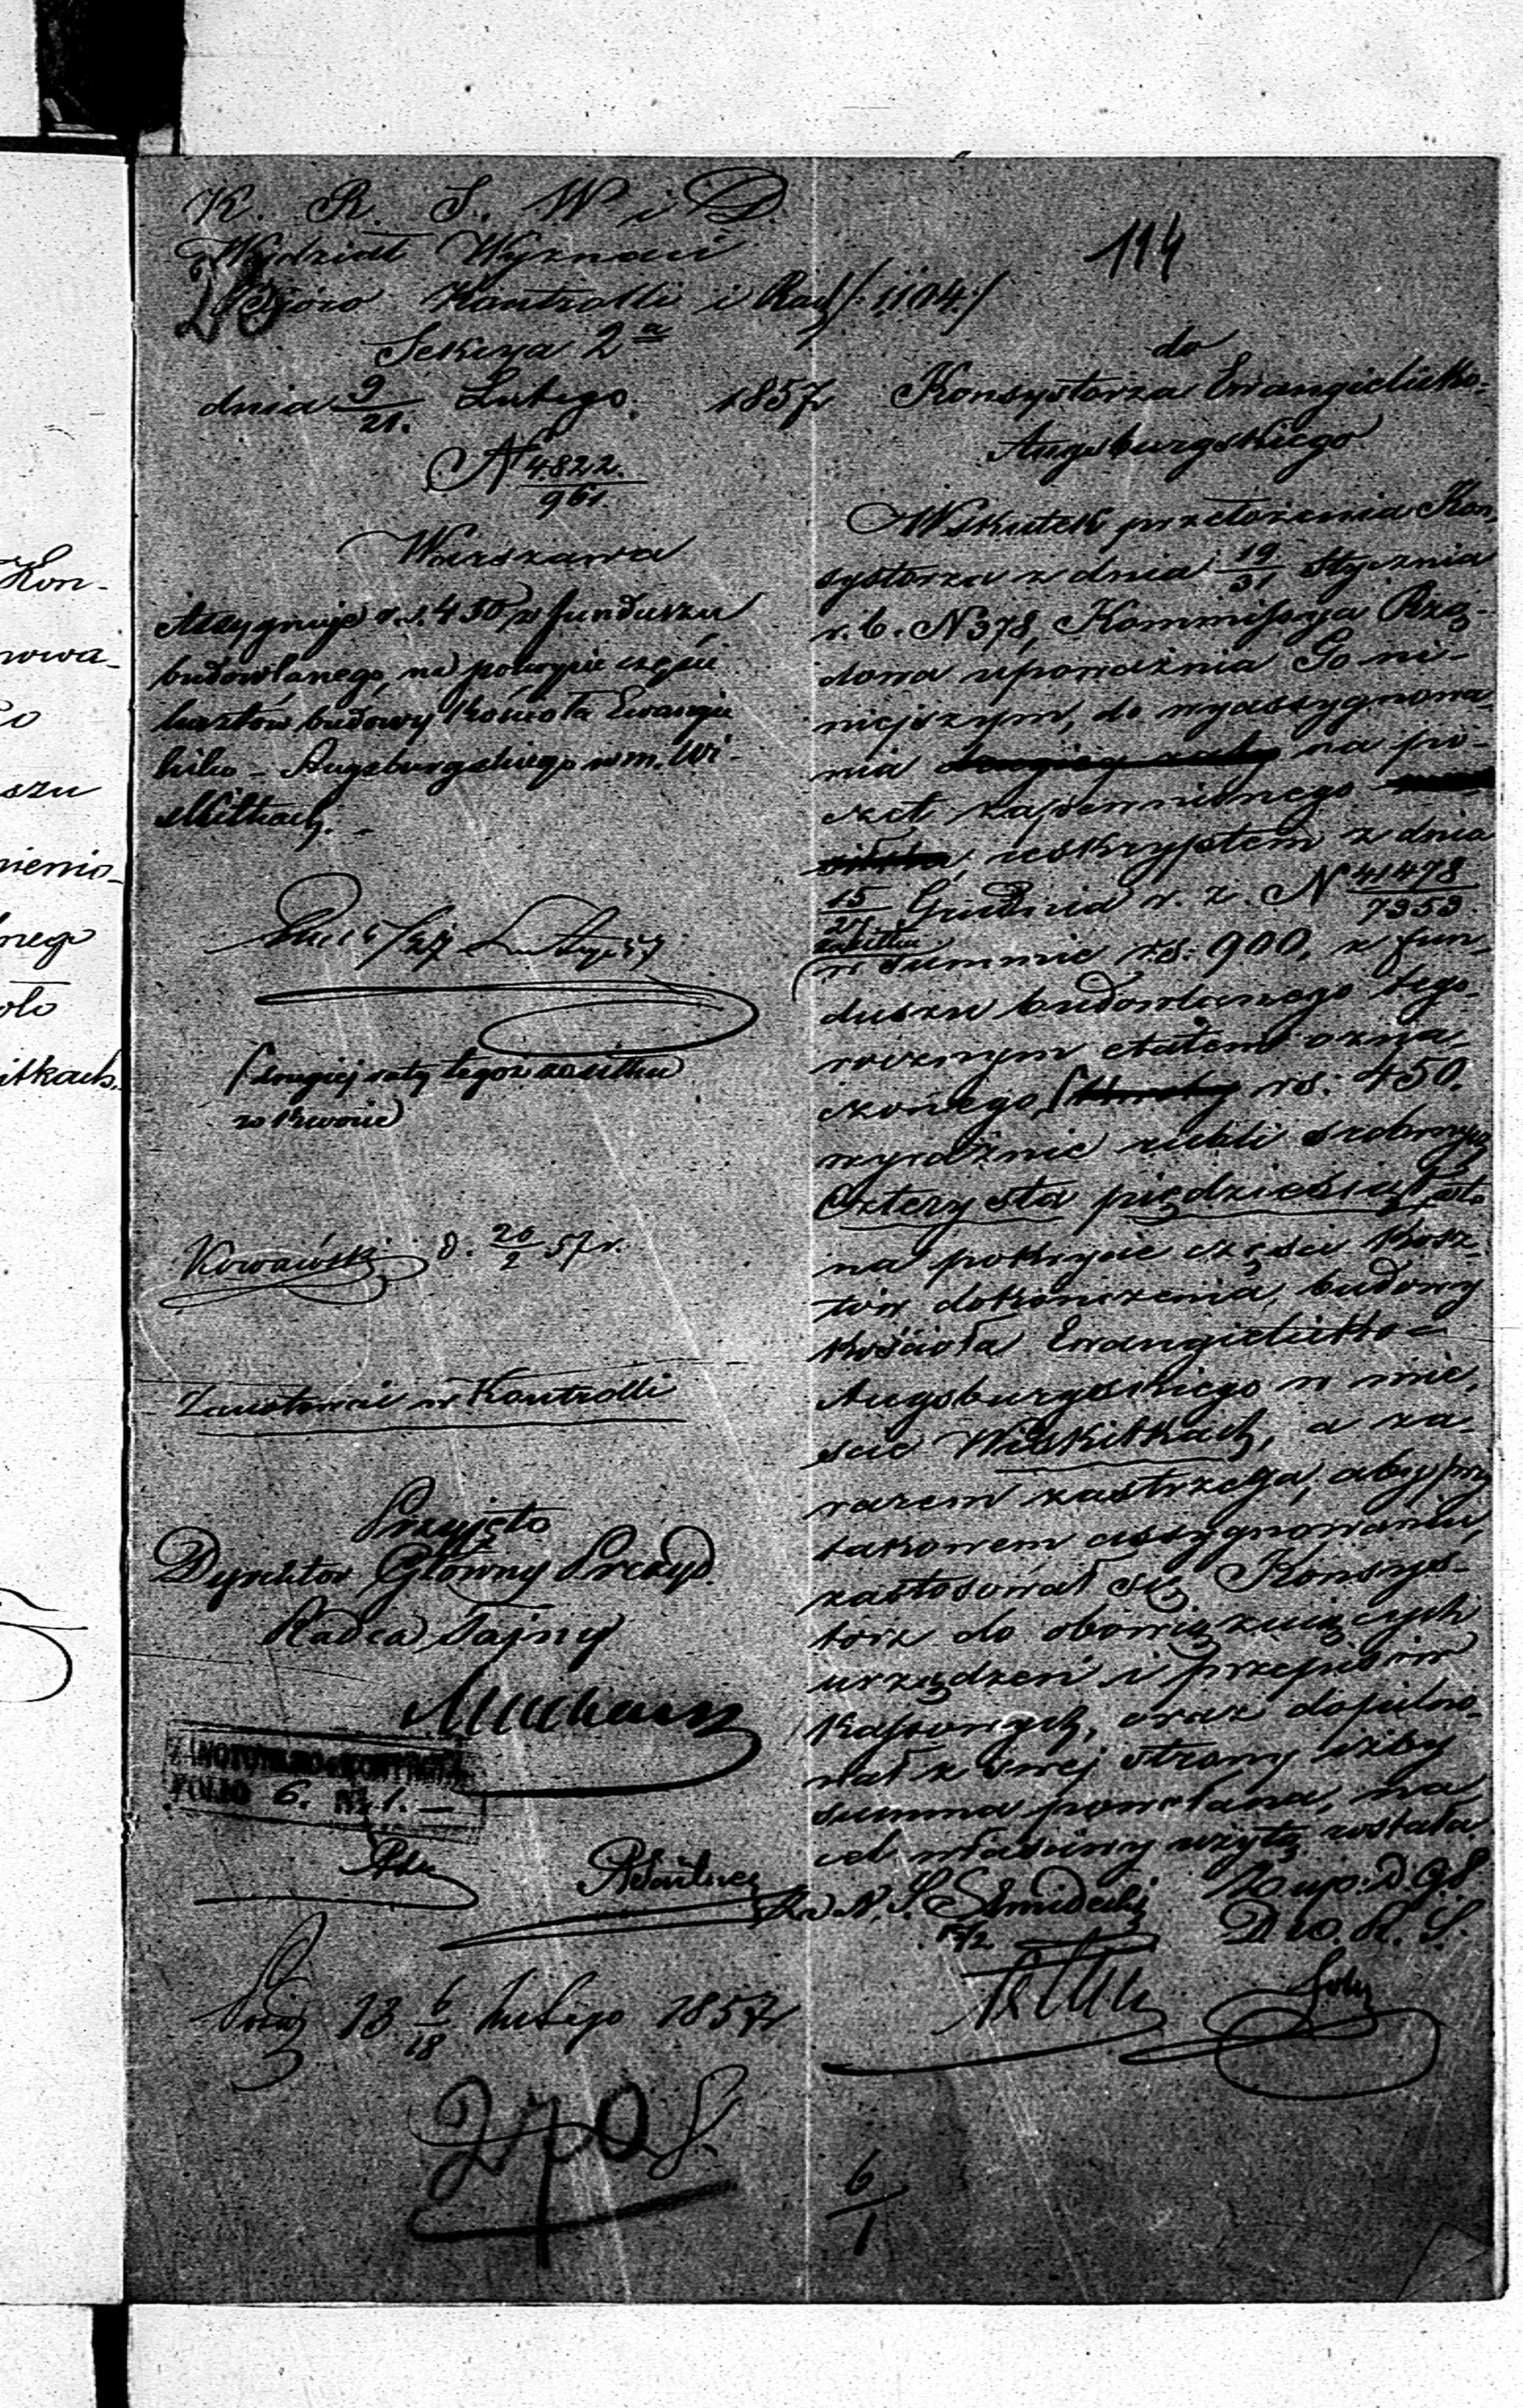 Kon-
nowa-
szu
nienio-
nego
itkach.
K. R. S. W i D.
Wydział Wyznań
Bióro Kontrolli i Rach /:1104:/
Sekcya 2a
dnia 9/21. Lutego 1857
N 4822/961
Warszawa
Assygnuje r.s. 450 z funduszu
budowlanego, na pokrycie części
kosztów budowy kościoła Ewangie
licko-Augsburgskiego w m. Wi-
skitkach.-
drugiej raty tegoż zasiłku
w kwocie
Kowalski d. 26/2 57 r.
Zanotować w Kontrolli
Przyjęto
Dyrektor Główny Prezyd.
Radca Tajny
ZANOTOWANO w KONTROLLI
FOLIO 6. No 1.-
dnia 6/18 Lutego 1857
270
114
do
Konsystorza Ewangielicko-
Augsburgskiego
Wskutek przełożenia Kon-
systorza z dnia 19/31 Stycznia
r. b. N 378, Kommissya Rzą-
dowa upoważnia Go ni-
niejszym, do wyassygnowa-
nia na po-
czet zapewnionego
reskryptem z dnia
15/27 Grudnia r. z. N 41478/7959
zasiłku
w summie r.s. 900, z fun-
duszu budowlanego tego-
rocznym etatem ozna-
czonego, rs: 450.
wyraźnie rubli srebrnych
Czterysta pięćdziesiąt
na pokrycie części kosz-
tów dokończenia budowy
Kościoła Ewangielicko-
Augsburgskiego w mie-
ście Wiskitkach, a za-
razem zastrzega, aby przy
takowem assygnowaniu,
zastosował się Konsys-
torz do obowiązujących
urządzeń i przepisów
Kassowych, oraz dopilno-
wał z swej strony iżby
summa powołana, na
cel właściwy użytą została
6/1